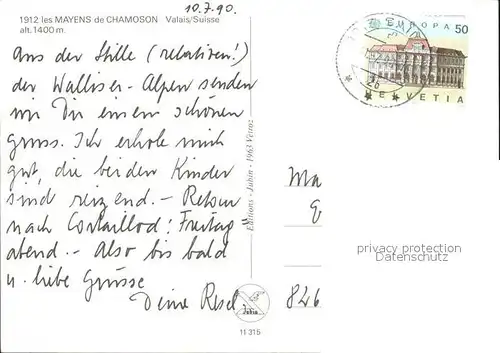 10.7.90.
1912 les MAYENS de CHAMOSON Valais/Suisse
alt. 1400 m.
Aus der Stille (relativen!)
der Walliser-Alpen senden
wir Dir einen schönen
gruss. Ich erhole mich
gut, die beiden Kinder
sind reizend. – Retour
nach Cortaillod: Freitag=
abend. – Also bis bald
u. liebe Grüsse
Deine Resel.
Editions - Jubin - 1963 Vétroz
JUBIN
11 315
EUROPA 50
HELVETIA
Ma
826
privacy protection
Datenschutz